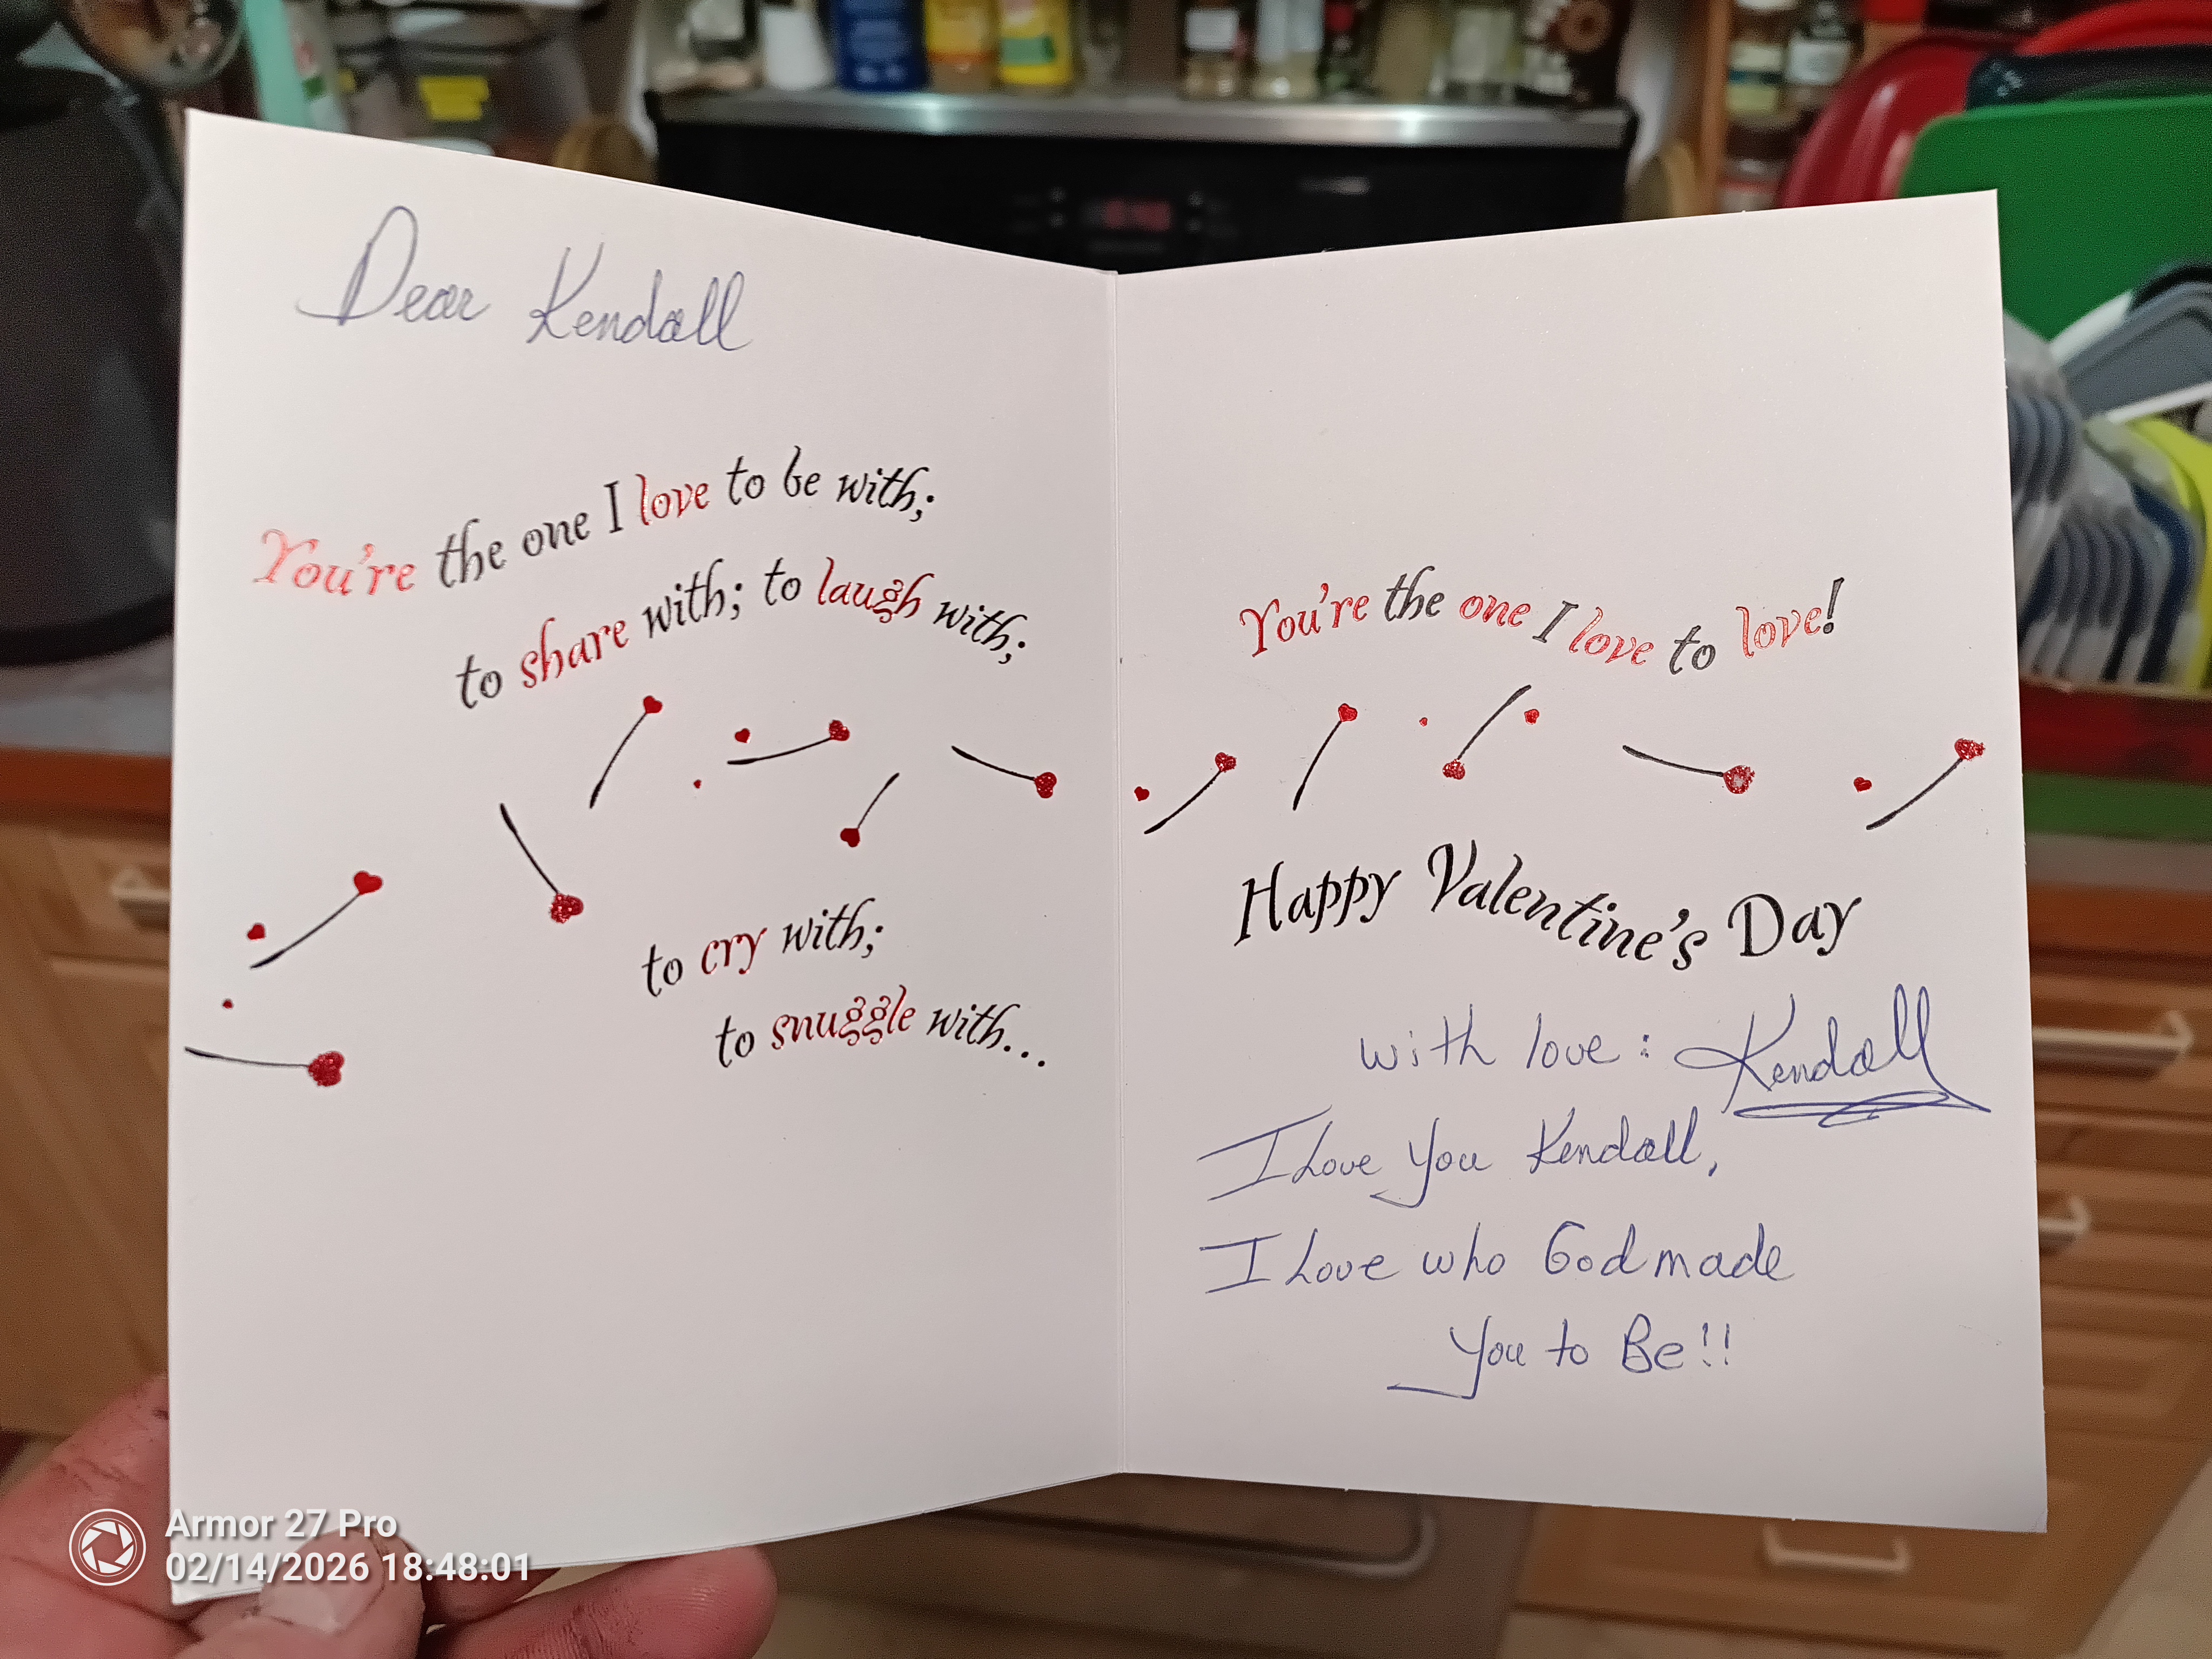 Dear Kendall
You're the one I love to be with;
to share with; to laugh with;
to cry with;
to snuggle with...
You're the one I love to love!
Happy Valentine's Day
with love: Kendall
I Love You Kendall,
I Love who God made
You to Be!!
Armor 27 Pro
02/14/2026 18:48:01